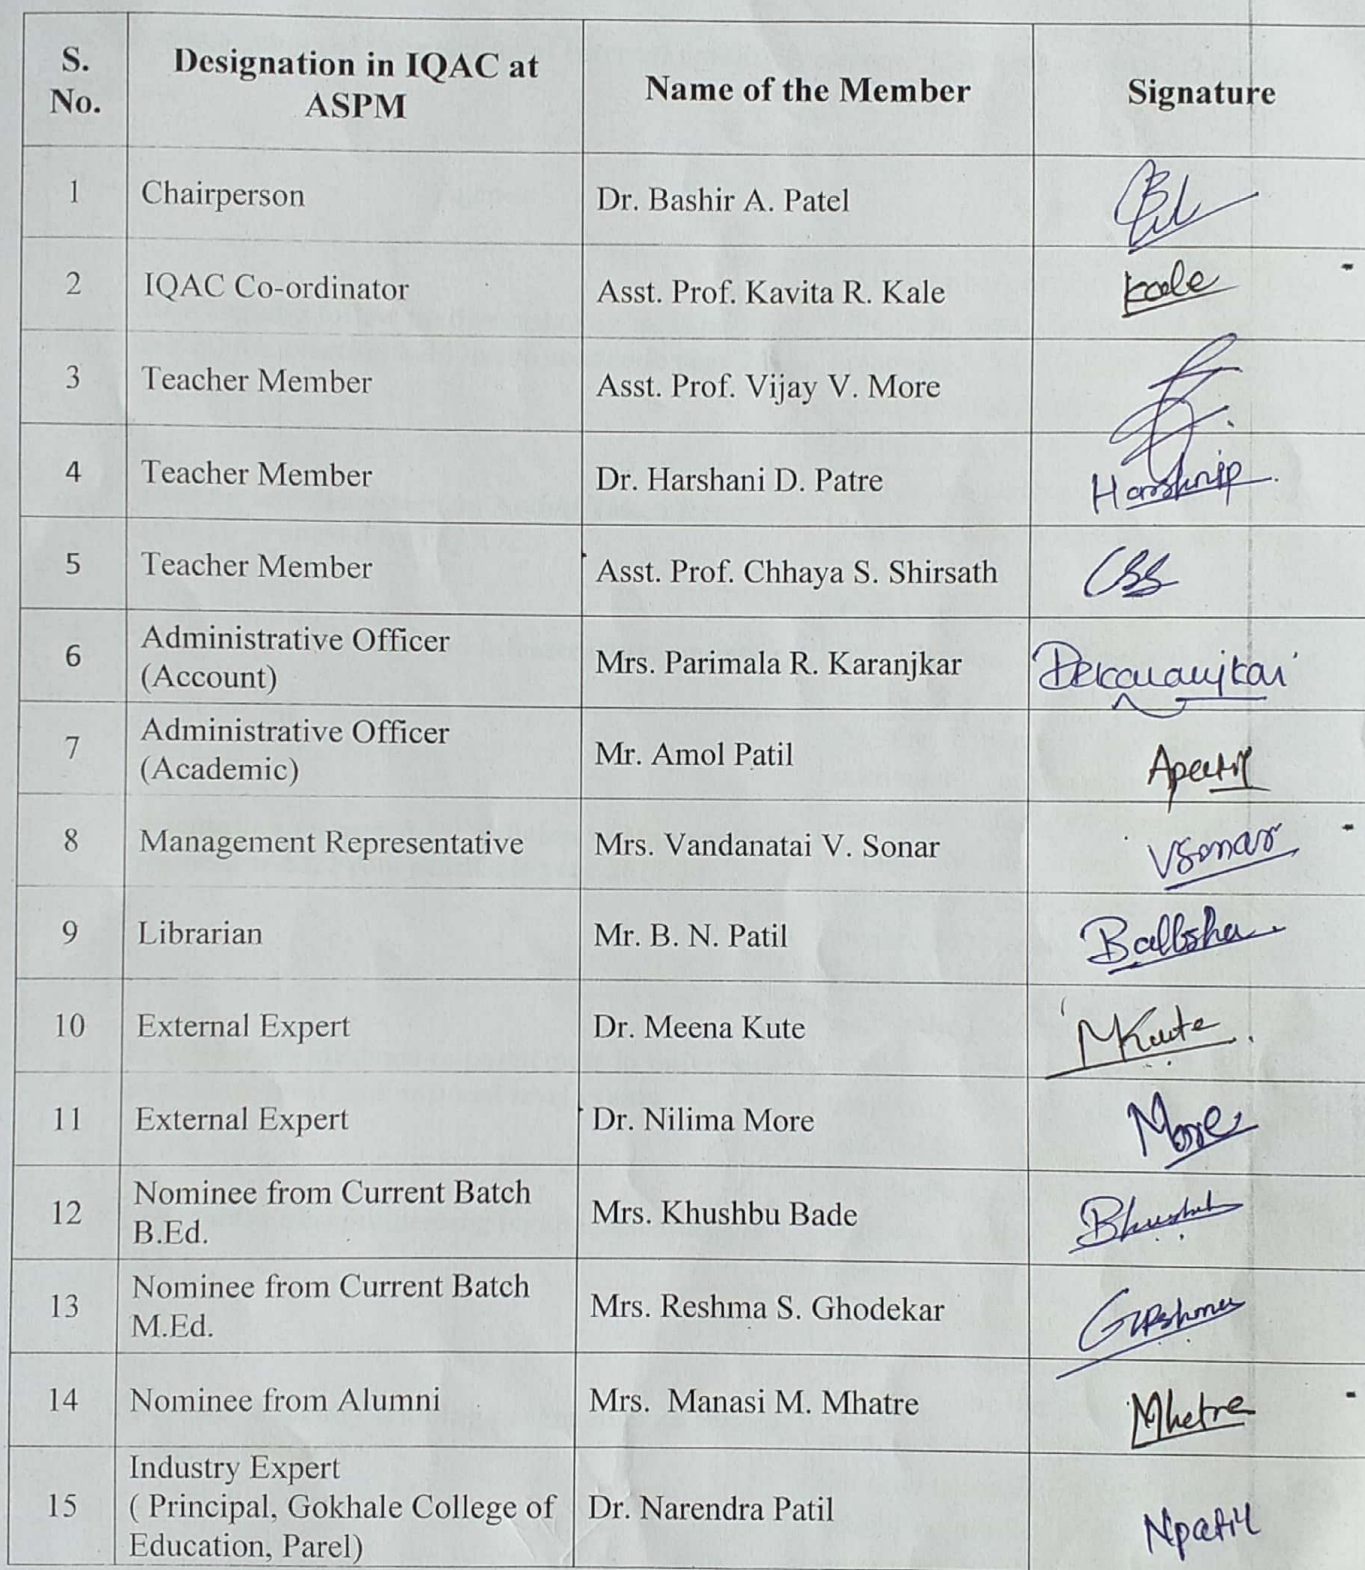 S. No. Designation in IQAC at ASPM Name of the Member Signature
1 Chairperson Dr. Bashir A. Patel
2 IQAC Co-ordinator Asst. Prof. Kavita R. Kale Kale
3 Teacher Member Asst. Prof. Vijay V. More
4 Teacher Member Dr. Harshani D. Patre
5 Teacher Member Asst. Prof. Chhaya S. Shirsath CSS
6 Administrative Officer (Account) Mrs. Parimala R. Karanjkar
7 Administrative Officer (Academic) Mr. Amol Patil Apatil
8 Management Representative Mrs. Vandanatai V. Sonar VSonar
9 Librarian Mr. B. N. Patil
10 External Expert Dr. Meena Kute MKute
11 External Expert Dr. Nilima More More
12 Nominee from Current Batch B.Ed. Mrs. Khushbu Bade
13 Nominee from Current Batch M.Ed. Mrs. Reshma S. Ghodekar
14 Nominee from Alumni Mrs. Manasi M. Mhatre Mhatre
15 Industry Expert ( Principal, Gokhale College of Education, Parel) Dr. Narendra Patil Npatil